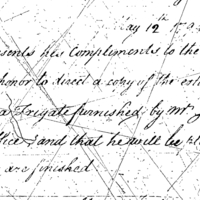 May 12th 179
esents his Compliments to the
honor to direct a copy of the est
a Frigate furnished by Mr
ffice and that he will be pl
are finished